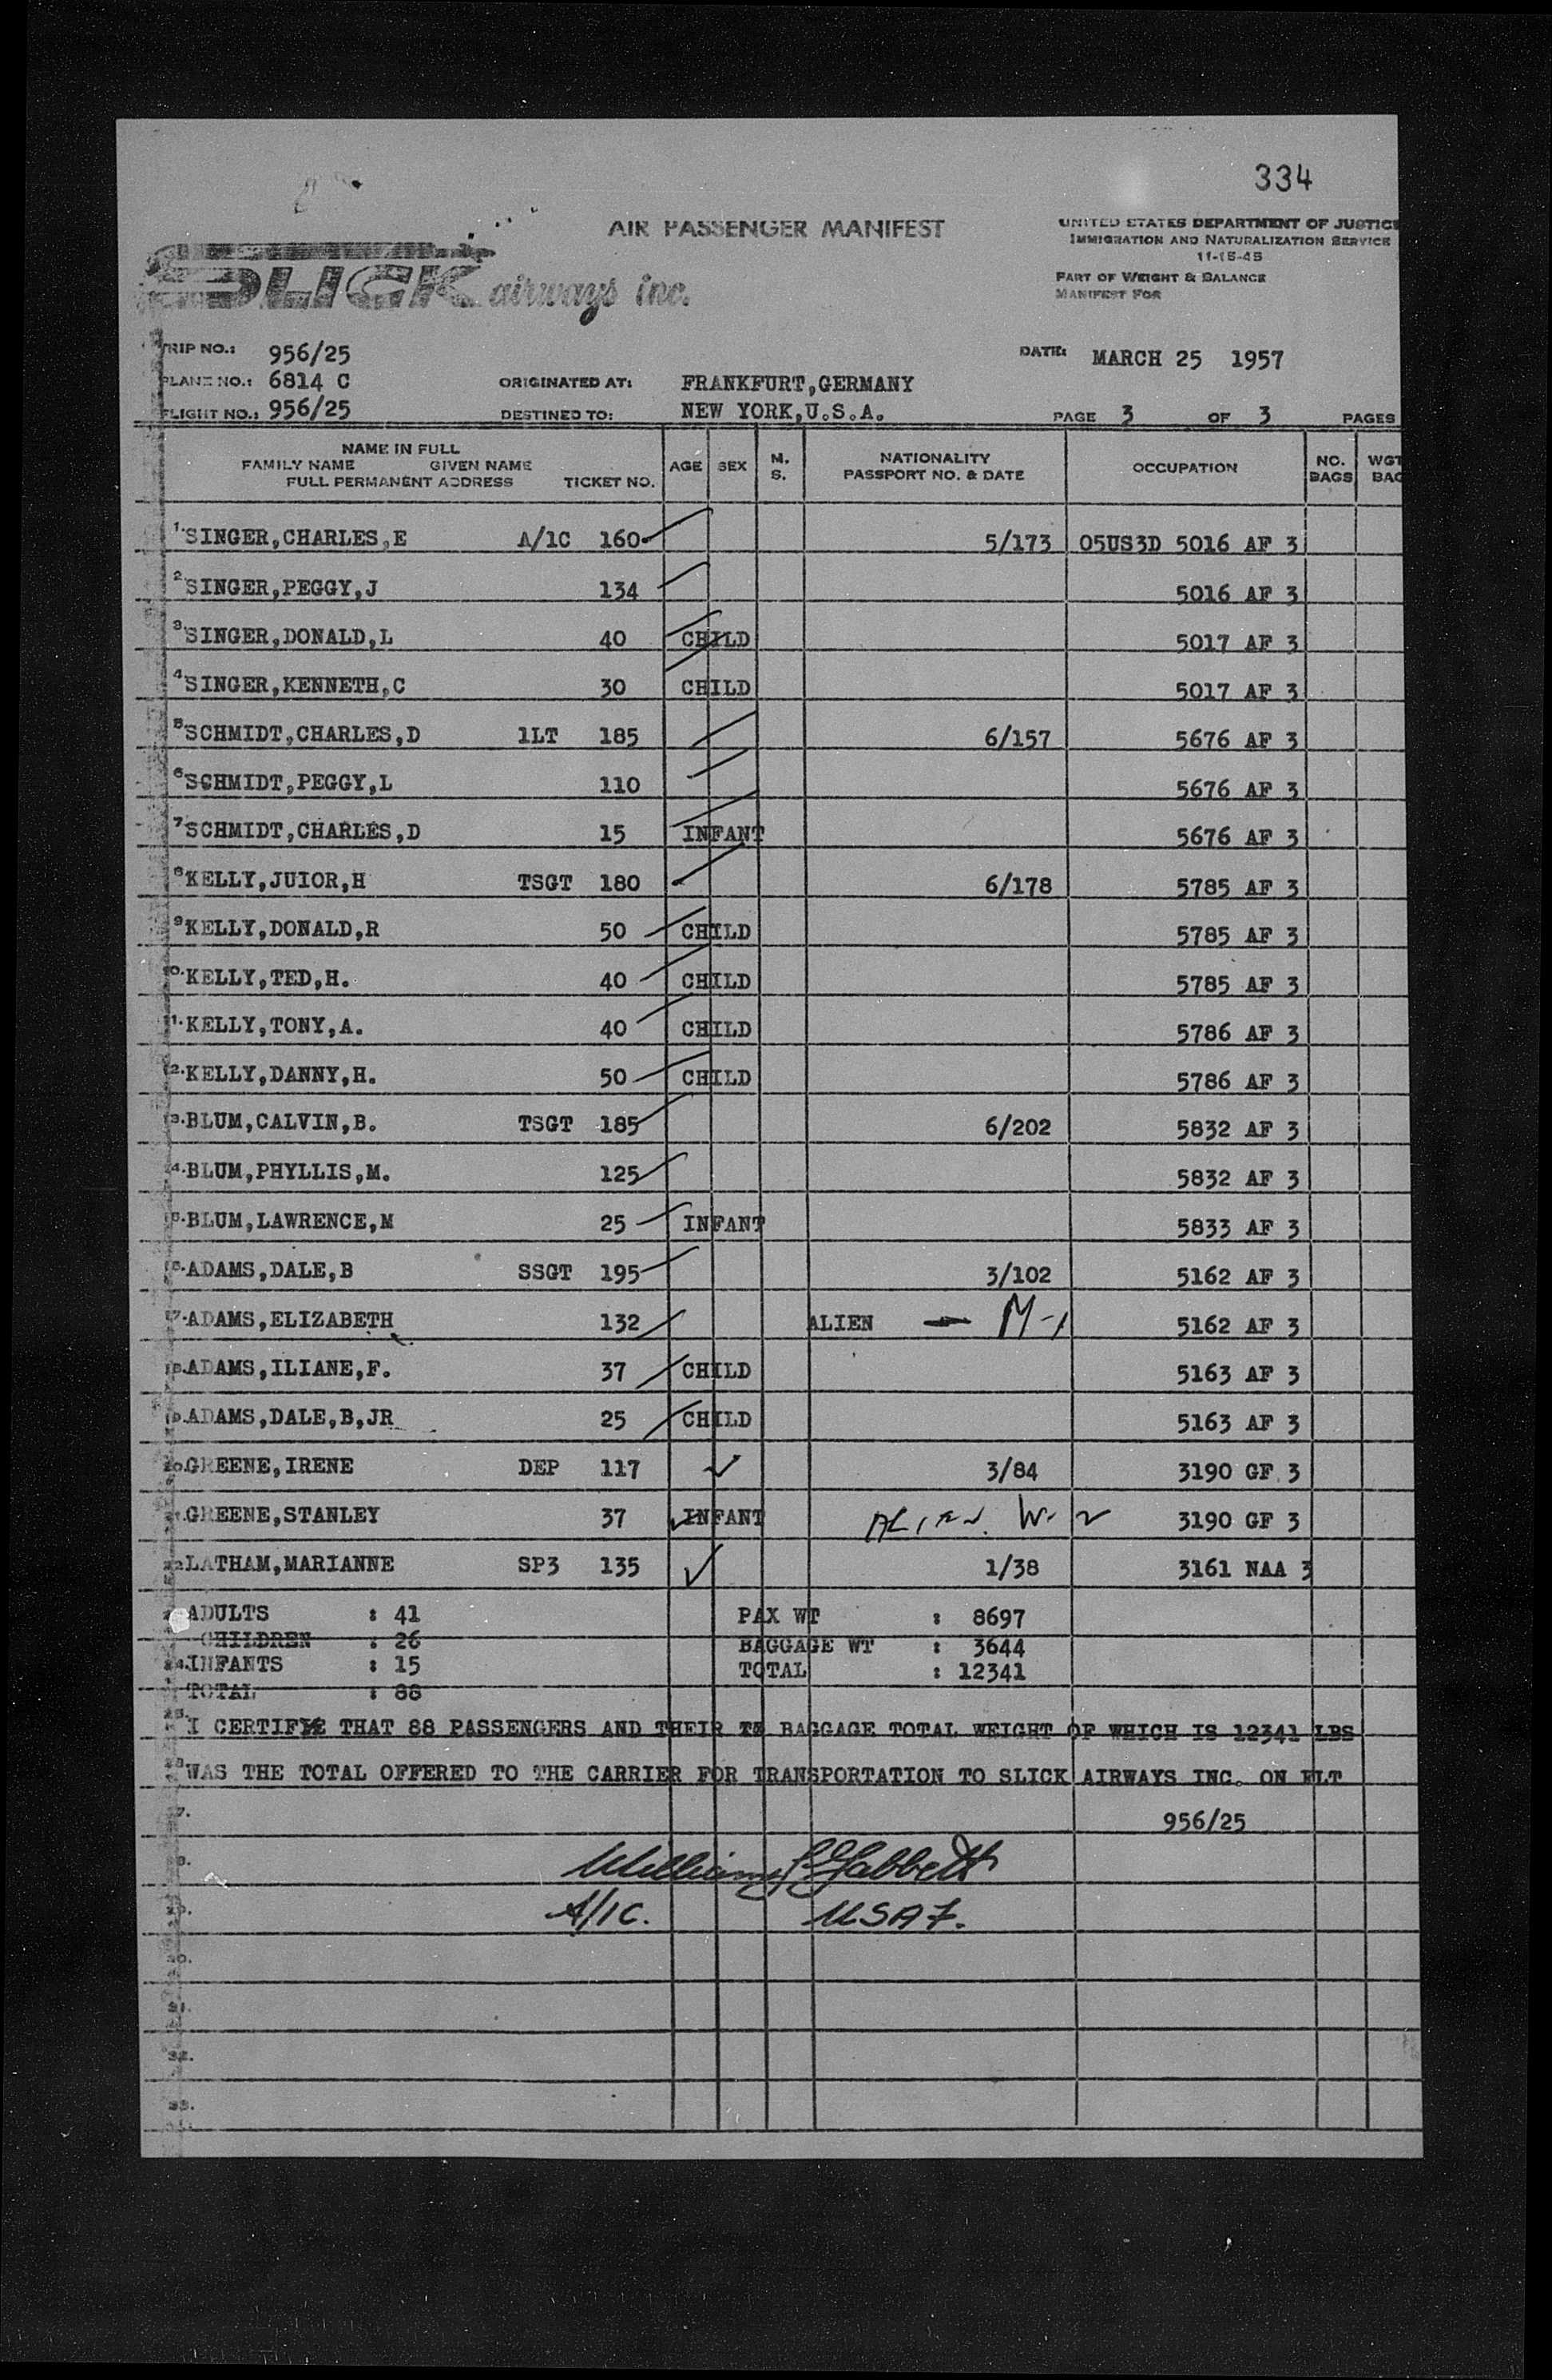 334
AIR PASSENGER MANIFEST
UNITED STATES DEPARTMENT OF JUSTICE
IMMIGRATION AND NATURALIZATION SERVICE
11-15-45
PART OF WEIGHT & BALANCE
MANIFEST FOR
SLICK airways inc.
TRIP NO.: 956/25
DATE: MARCH 25 1957
PLANE NO.: 6814 C ORIGINATED AT: FRANKFURT,GERMANY
FLIGHT NO.: 956/25 DESTINED TO: NEW YORK,U.S.A. PAGE 3 OF 3 PAGES
NAME IN FULL
FAMILY NAME GIVEN NAME
FULL PERMANENT ADDRESS TICKET NO. AGE SEX M. S. NATIONALITY PASSPORT NO. & DATE OCCUPATION NO. BAGS WGT BAG
1. SINGER,CHARLES,E A/1C 160 5/173 05US3D 5016 AF 3
2 SINGER,PEGGY,J 134 5016 AF 3
3 SINGER,DONALD,L 40 CHILD 5017 AF 3
4 SINGER,KENNETH,C 30 CHILD 5017 AF 3
5 SCHMIDT,CHARLES,D 1LT 185 6/157 5676 AF 3
6 SCHMIDT,PEGGY,L 110 5676 AF 3
7 SCHMIDT,CHARLES,D 15 INFANT 5676 AF 3
8 KELLY,JUIOR,H TSGT 180 6/178 5785 AF 3
9 KELLY,DONALD,R 50 CHILD 5785 AF 3
10. KELLY,TED,H. 40 CHILD 5785 AF 3
11. KELLY,TONY,A. 40 CHILD 5786 AF 3
12. KELLY,DANNY,H. 50 CHILD 5786 AF 3
13. BLUM,CALVIN,B. TSGT 185 6/202 5832 AF 3
14. BLUM,PHYLLIS,M. 125 5832 AF 3
15. BLUM,LAWRENCE,M 25 INFANT 5833 AF 3
16. ADAMS,DALE,B SSGT 195 3/102 5162 AF 3
17. ADAMS,ELIZABETH 132 ALIEN — M-1 5162 AF 3
18. ADAMS,ILIANE,F. 37 CHILD 5163 AF 3
19. ADAMS,DALE,B,JR 25 CHILD 5163 AF 3
20. GREENE,IRENE DEP 117 3/84 3190 GF 3
21. GREENE,STANLEY 37 INFANT ALIEN. W-2 3190 GF 3
22. LATHAM,MARIANNE SP3 135 1/38 3161 NAA 3
ADULTS : 41 PAX WT : 8697
CHILDREN : 26 BAGGAGE WT : 3644
24. INFANTS : 15 TOTAL : 12341
TOTAL : 88
25. I CERTIFYE THAT 88 PASSENGERS AND THEIR BAGGAGE TOTAL WEIGHT OF WHICH IS 12341 LBS
26 WAS THE TOTAL OFFERED TO THE CARRIER FOR TRANSPORTATION TO SLICK AIRWAYS INC. ON FLT
27. 956/25
28. William
29. A/1C. USAF.
30.
31.
32.
33.